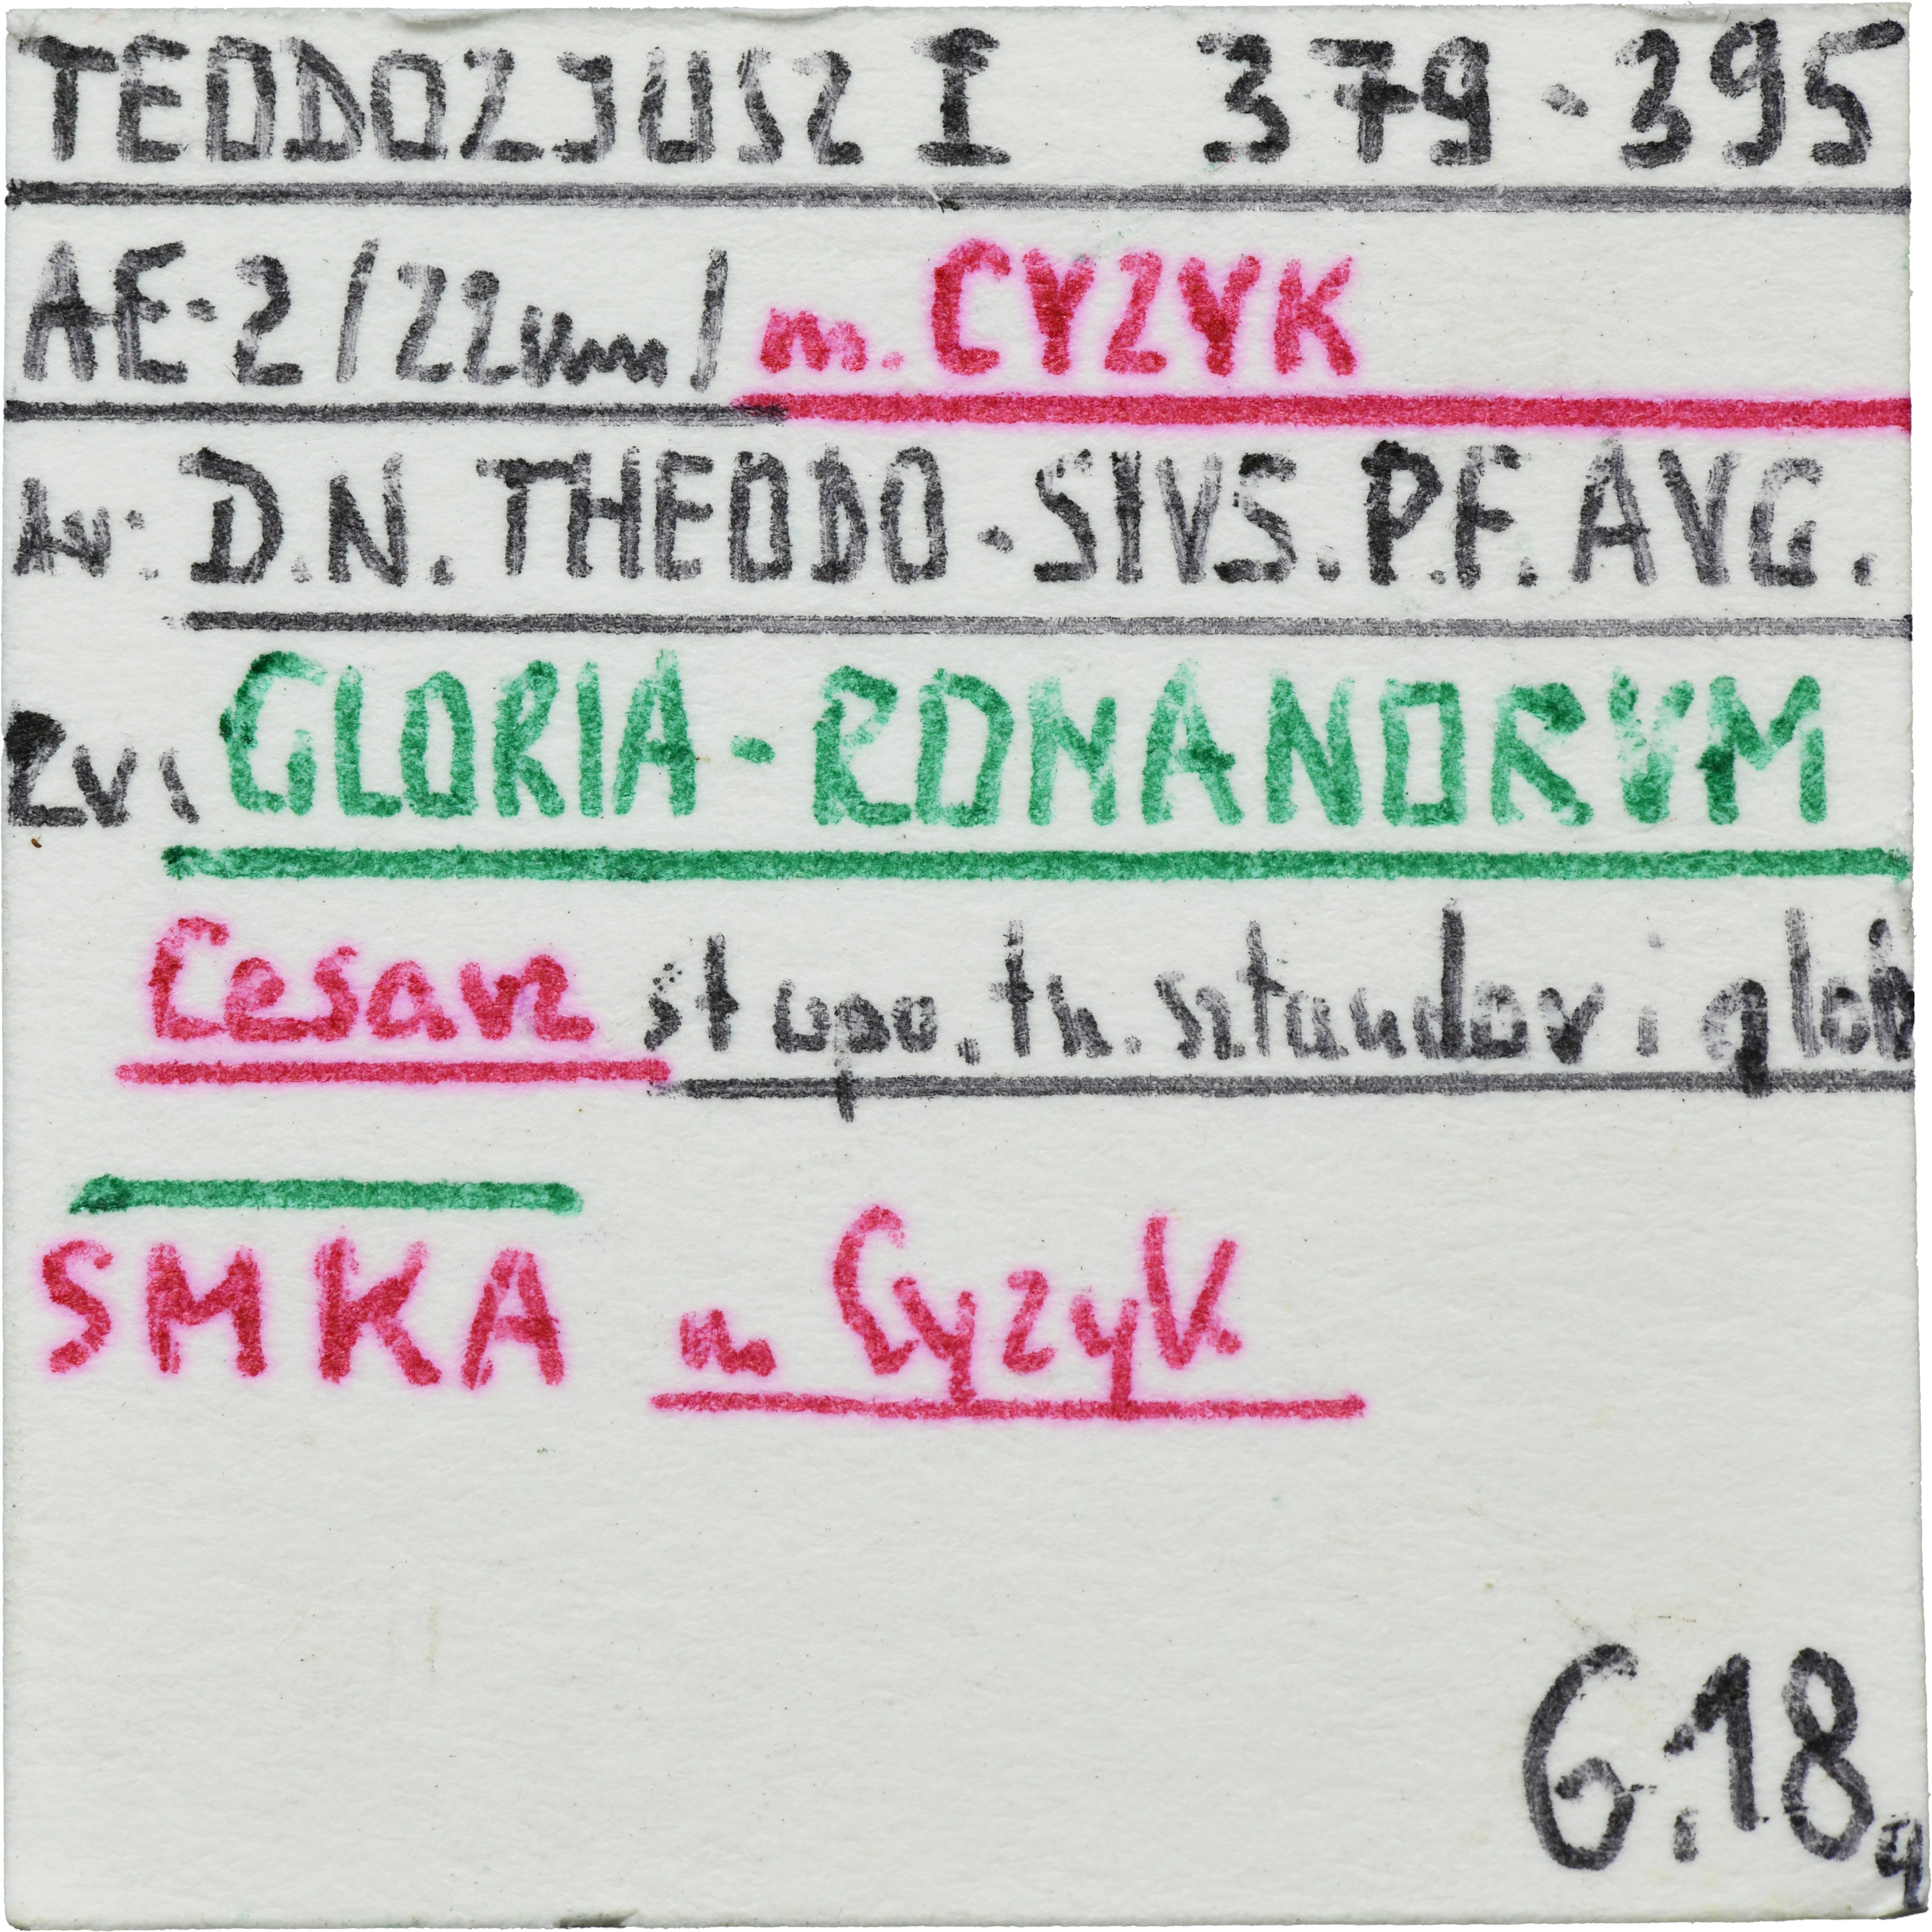 TEODOZJUSZ I 379-395
AE-2/22mm/ m. CYZYK
Av: D.N. THEODO-SIVS.P.F.AVG.
Rv: GLORIA-ROMANORVM
Cesarz st wpo. th. sztandar i glob
SMKA m Cyzyk
6.18